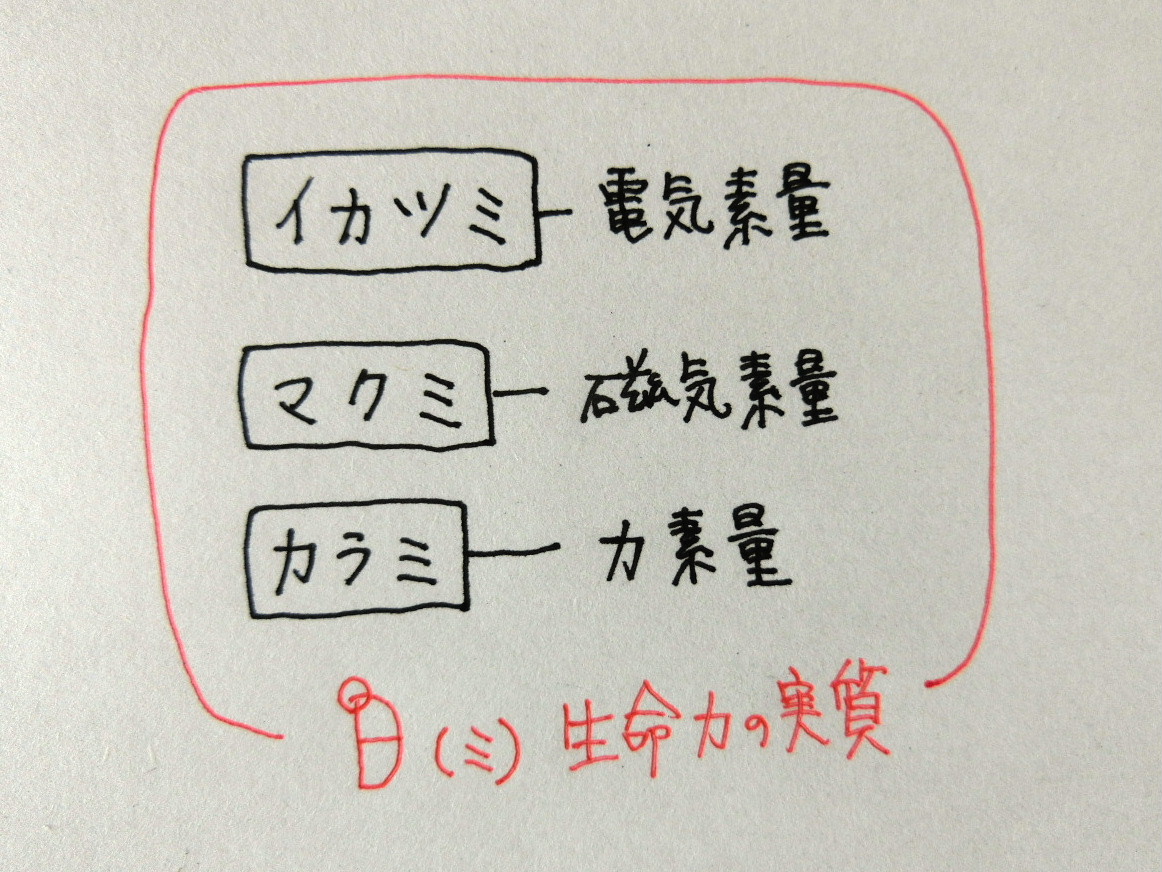 イカツミ 電気素量
マクミ 磁気素量
カラミ 力素量
(ミ) 生命力の実質